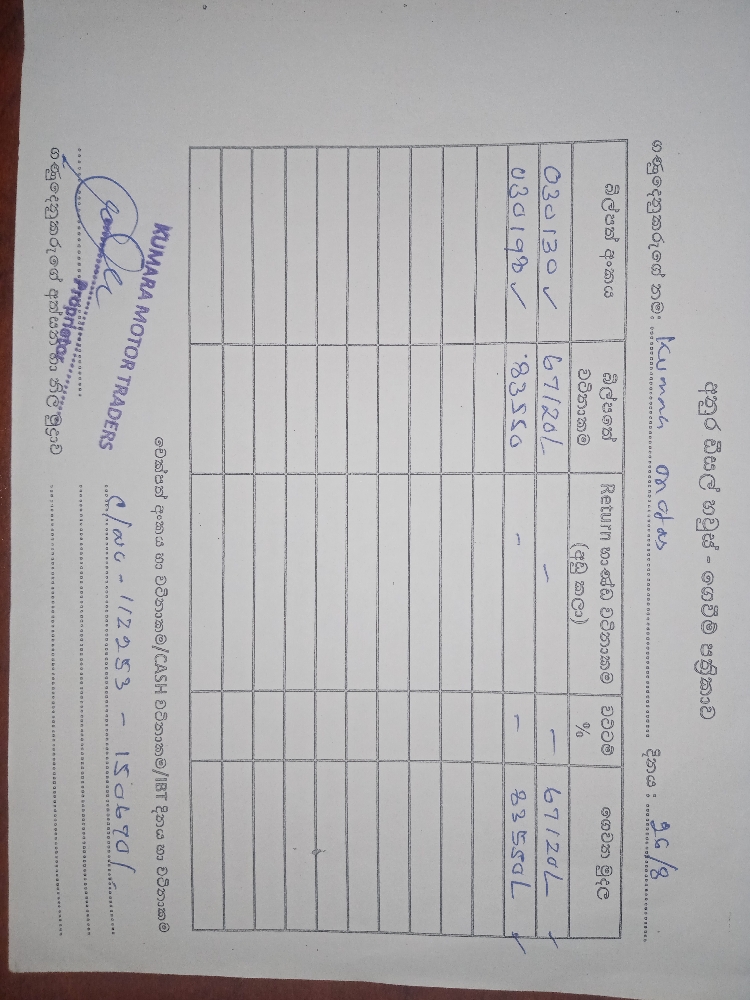 අනුර ඩීසල් හවුස් - ගෙවීම් පත්‍රිකාව
ගණුදෙනුකරුගේ නම: Kumara දිනය : 26/8
බිල්පත් අංකය බිල්පතේ වටිනාකම Return භාණ්ඩ වටිනාකම (අඩු කලා) වට්ටම් % ගෙවන මුදල
030130 ✓ 67120/- - - 67120/- ✓
030198 ✓ 83550 - - 83550/- ✓
චෙක්පත් අංකය හා වටිනාකම/CASH වටිනාකම/IBT දිනය හා වටිනාකම
KUMARA MOTOR TRADERS
- 112253 - 150670/-
Proprietor
ගණුදෙනුකරුගේ අත්සන හා නිල මුද්‍රාව